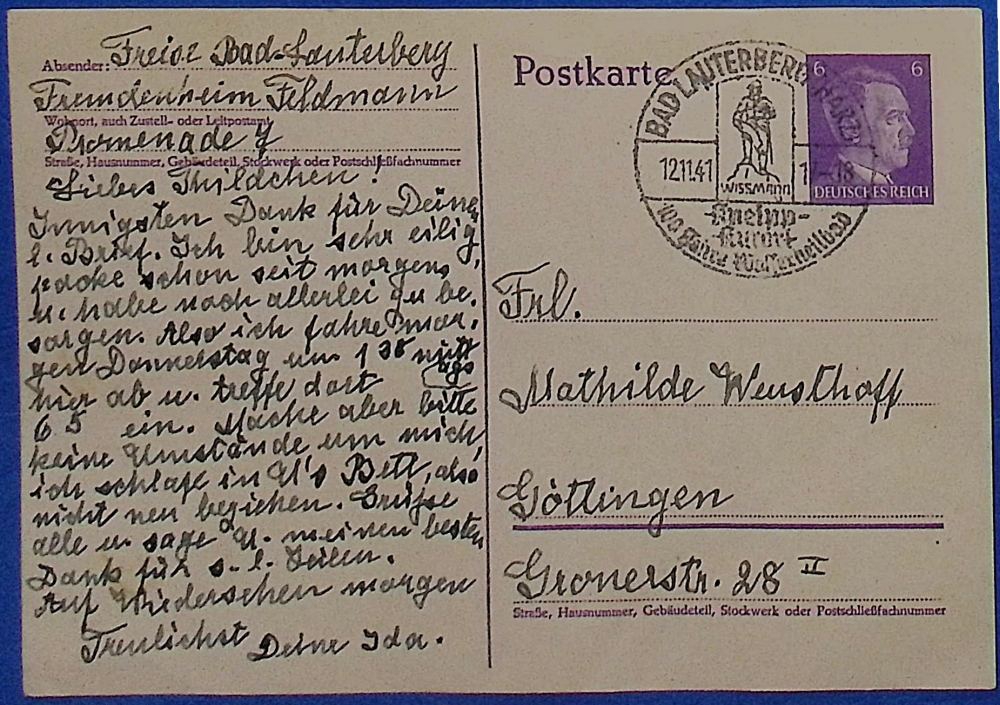 Absender: Freise Bad-Lauterberg
Fremdenheim Feldmann
Wohnort, auch Zustell- oder Leitpostamt
Promenade 7
Straße, Hausnummer, Gebäudeteil, Stockwerk oder Postschließfachnummer
Liebes Thildchen!
Innigsten Dank für Deinen
l. Brief. Ich bin sehr eilig,
packe schon seit morgens,
u. habe noch allerlei zu be-
sorgen. Also ich fahre mor-
gen Donnerstag um 1 38 mitt
ags
hier ab u. treffe dort
6 5 ein. Mache aber bitte
keine Umstände um mich,
ich schlafe in U's Bett, also
nicht neu beziehen. Grüße
alle u. sage U. meinen besten
Dank für s. l. Zeilen.
Auf Wiedersehen morgen
Treulichst Deine Ida.
Postkarte
BAD LAUTERBERG HARZ
12.11.41
17-18
WISSMANN
Kneipp-
Kurort
100 Jahre Wasserheilbad
6 6
DEUTSCHES REICH
Frl.
Mathilde Weusthoff
Göttingen
Gronerstr. 28 II
Straße, Hausnummer, Gebäudeteil, Stockwerk oder Postschließfachnummer